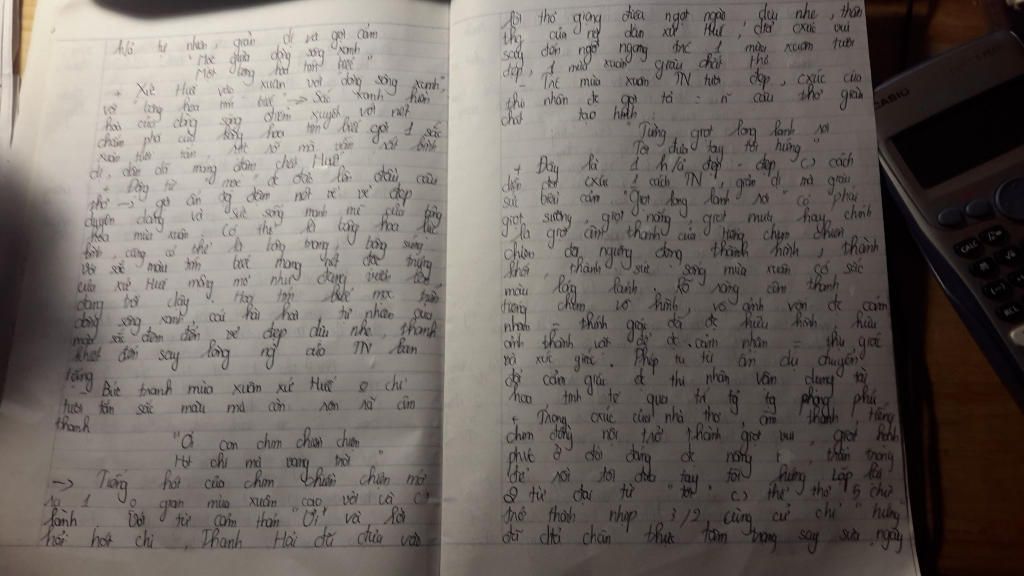 hài tự nhiên, giản dị và gợi cảm
"Mọc giữa dòng sông xanh
Một bông hoa tím biếc"
+ Xứ Huế vào xuân với dòng sông xanh,
với bông hoa tím biếc → Sắc xanh hiền
hoà của dòng sông điểm xuyết với nét
chấm phá của bông hoa tím biếc gợi 1 sắc
xuân tươi tắn, rực rỡ mà vẫn rất bình
dị, đằm mang đậm chất Huế
+ Động từ "mọc" đc đảo lên đầu câu
thơ → gợi ấn tg đậm nét về vẻ đẹp
duyên dáng và sức sống mạnh mẽ của bông
hoa mùa xuân. Có thể là bông hoa lục
bình, cũng có thể là bông trang, bông súng
với sắc màu tím biếc mang nét đặc trưng
của xứ Huế mộng mơ như đang vươn lên,
đang trỗi dậy. Hoa tím biếc mọc trên
dòng sông xanh cái hài hoà tự nhiên giữa
màu sắc đem đến vẻ đẹp dịu nhẹ, thanh
khiết đến say lòng ng của TN ban
tặng
- Bức tranh mùa xuân xứ Huế o chỉ
tươi tắn sắc màu mà còn rộn rã âm
thanh
"Ơi con chim chiền chiện
Hót chi mà vang trời"
→ Tiếng hót của chim chiền chiện mở
ra 1 o gian mùa xuân cao vời và
lành. Với từ cảm thán "Ơi" và lời
hỏi hót chi, Thanh Hải đã đưa vào
lời thơ giọng điệu ngọt ngào, dịu nhẹ, thân
thg của ng dân xứ Huế, đó cxúc vui
say đến ngỡ ngàng trc 1 mùa xuân tươi
đẹp, 1 mùa xuân giàu chất thơ
- Trc mùa xuân TN tươi đẹp, cxúc của
thi nhân đc gợi tả = n~ câu thơ giàu
chất tạo hình
"Từng giọt long lanh rơi
Tôi đưa tay tôi hứng"
+ Đây là 1 h/ả đẹp - đẹp cách
diễn đạt cxúc 1 cách TN, giản dị mà giàu
sức biểu cảm. "Giọt long lanh rơi" có phải
giọt sương, giọt nắng, giọt mưa hay chính
là giọt âm thanh của tiếng chim chiền
chiện đg ngưng đọng thành hình, thành
khối, thành sức sống mùa xuân có sắc
màu lóng lánh. Rõ ràng âm thanh
tiếng chim vô hình, vô ảnh vốn đc cảm
nhận = thính giác đã đc hữu hình, hữu
ảnh thành vật để đc cảm nhận = thị giác
và xúc giác. Phép tu từ ẩn dụ chuyển
đổi cảm giác đc thi nhân vận dụng tài
hoa tinh tế qua trí tg tg phong phú
+ Trong cxúc của nhà thơ, âm thanh tiếng
chim dường nối trở thành giọt vui, giọt hạnh
phúc ở đời đang đc nâng niu, trân trọng
để rồi tôi đưa tay tôi hứng. Lặp lại
2 từ đại từ "tôi" thể thơ 5 chữ
trở thành nhịp 3/2 cùng cử chỉ "hứng"
đã đời chân thực tâm trạng say sưa, ngây